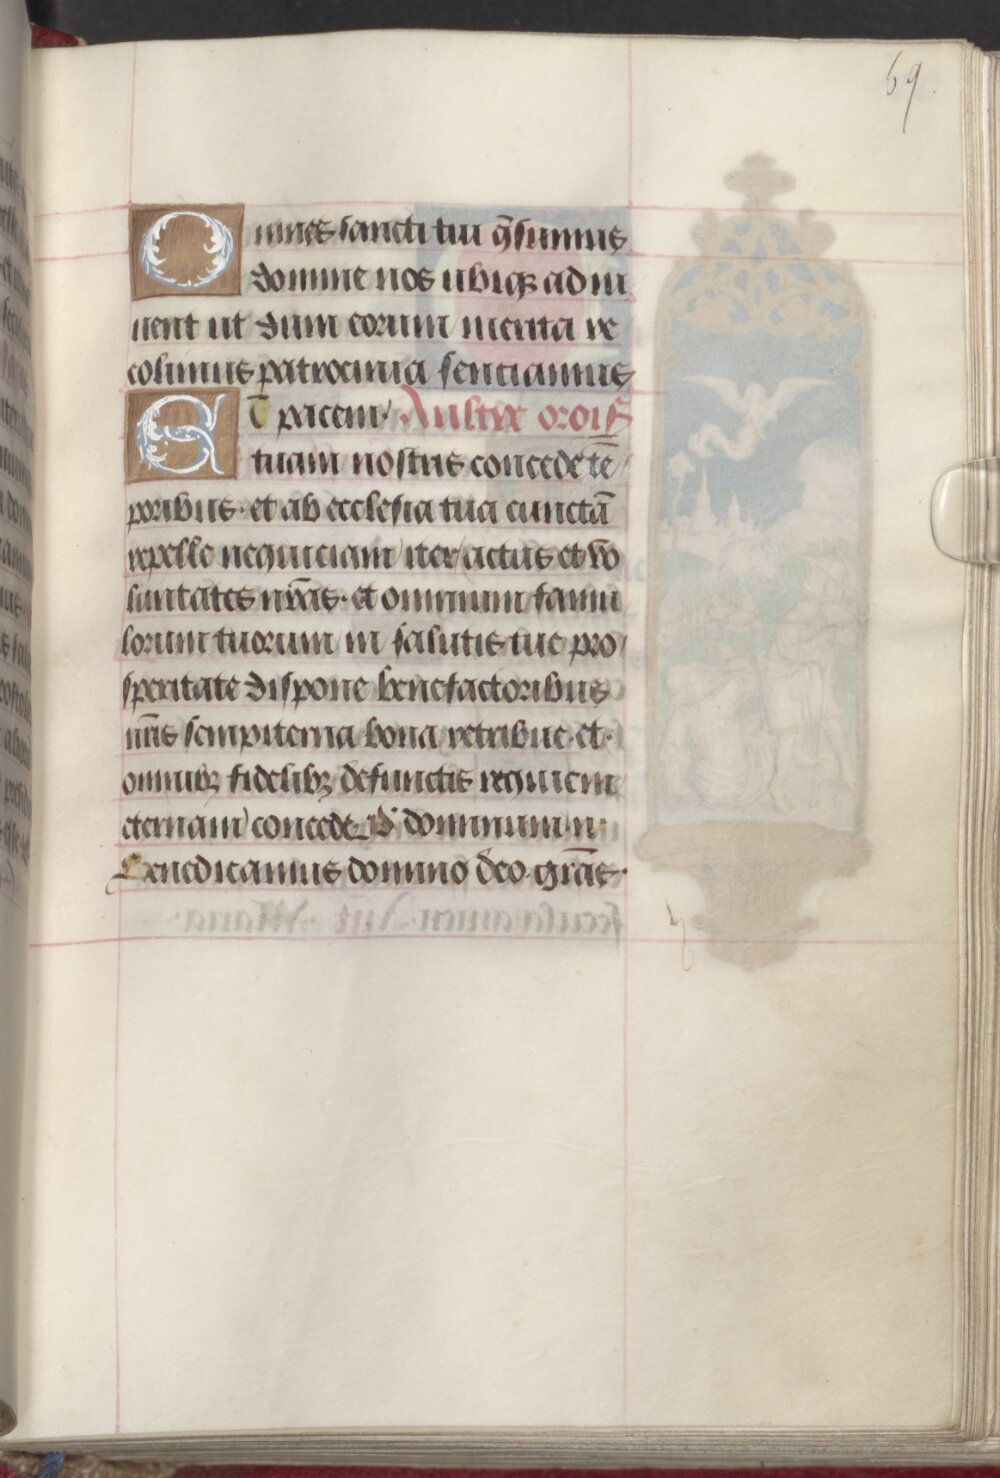 69.
Omnes sancti tui q̄sumus
domine nos ubiqꝫ adiu
uent ut dum eorum merita re
colimus patrocinia sentiamus
Et pacem Aultre orois̄
tuam nostris concede tē
poribus· et ab ecclesia tua cunctā
repelle nequiciam iter actus et vo
luntates nr̄as· et omnium famu
lorum tuorum in salutis tue pro
speritate dispone benefactoribus
nr̄is sempiterna bona retribue et·
omnibꝫ fidelibꝫ defunctis requiem
eternam concede dominum n
Benedicamus domino deo grās·